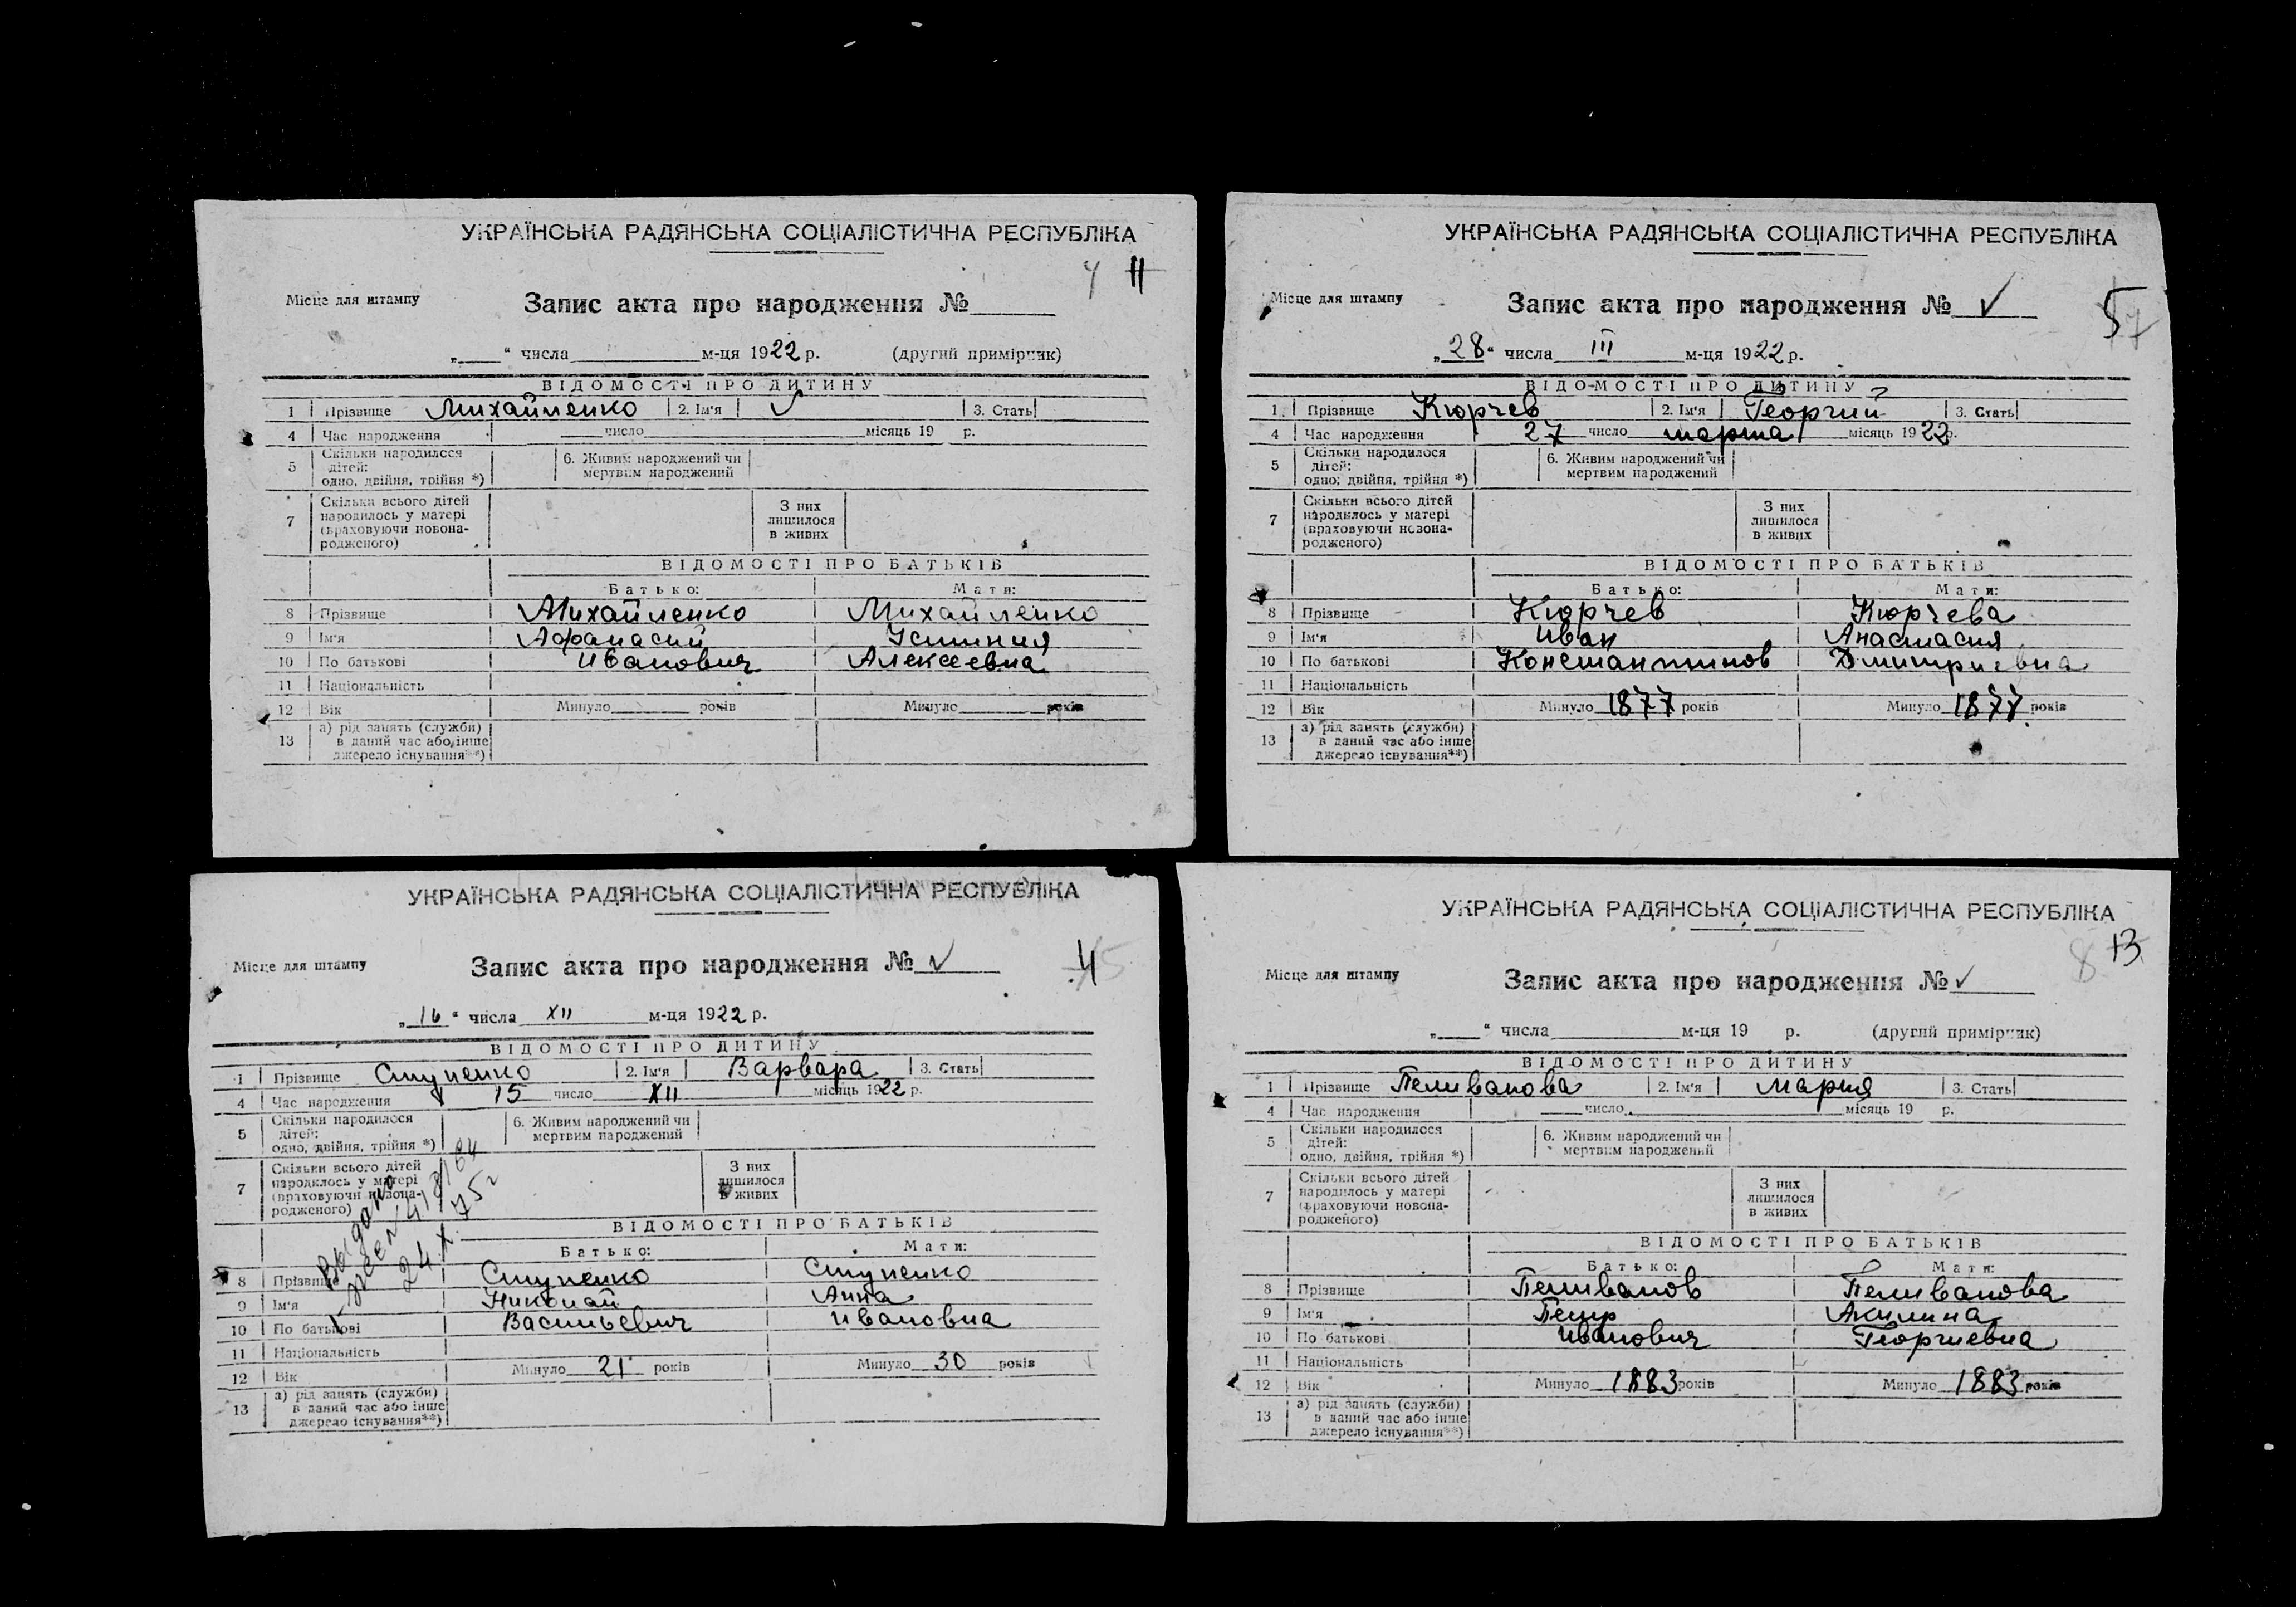 УКРАЇНСЬКА РАДЯНСЬКА СОЦІАЛІСТИЧНА РЕСПУБЛІКА
11
Місце для штампу
Запис акта про народження №
„ “ числа м-ця 1922 р. (другий примірник)
ВІДОМОСТІ ПРО ДИТИНУ
1 Прізвище Михайленко 2. Ім'я ✓ 3. Стать
4 Час народження число місяць 19 р.
5 Скільки народилося дітей: одно, двійня, трійня *) 6. Живим народжений чи мертвим народжений
7 Скільки всього дітей народилось у матері (враховуючи новонародженого) З них лишилося в живих
ВІДОМОСТІ ПРО БАТЬКІВ
Батько: Мати:
8 Прізвище Михайленко Михайленко
9 Ім'я Афанасий Устиния
10 По батькові Иванович Алексеевна
11 Національність
12 Вік Минуло років Минуло років
13 а) рід занять (служби) в даний час або інше джерело існування**)
УКРАЇНСЬКА РАДЯНСЬКА СОЦІАЛІСТИЧНА РЕСПУБЛІКА
5 7
Місце для штампу
Запис акта про народження № ✓
„28“ числа III м-ця 1922 р.
ВІДОМОСТІ ПРО ДИТИНУ
1 Прізвище Кюрчев 2. Ім'я Георгий 3. Стать
4 Час народження 27 число марта місяць 1922 р.
5 Скільки народилося дітей: одно, двійня, трійня *) 6. Живим народжений чи мертвим народжений
7 Скільки всього дітей народилось у матері (враховуючи новонародженого) З них лишилося в живих
ВІДОМОСТІ ПРО БАТЬКІВ
Батько: Мати:
8 Прізвище Кюрчев Кюрчева
9 Ім'я Иван Анастасия
10 По батькові Константинов Дмитриевна
11 Національність
12 Вік Минуло 1877 років Минуло 1877 років
13 а) рід занять (служби) в даний час або інше джерело існування**)
УКРАЇНСЬКА РАДЯНСЬКА СОЦІАЛІСТИЧНА РЕСПУБЛІКА
4
Місце для штампу
Запис акта про народження № ✓
„16“ числа XII м-ця 1922 р.
ВІДОМОСТІ ПРО ДИТИНУ
1 Прізвище Ступенко 2. Ім'я Варвара 3. Стать
4 Час народження 15 число XII місяць 1922 р.
5 Скільки народилося дітей: одно, двійня, трійня *) 6. Живим народжений чи мертвим народжений
7 Скільки всього дітей народилось у матері (враховуючи новонародженого) З них лишилося в живих
Выдано
24 X 75 г
ВІДОМОСТІ ПРО БАТЬКІВ
Батько: Мати:
8 Прізвище Ступенко Ступенко
9 Ім'я Николай Анна
10 По батькові Васильевич Ивановна
11 Національність
12 Вік Минуло 21 років Минуло 30 років
13 а) рід занять (служби) в даний час або інше джерело існування**)
УКРАЇНСЬКА РАДЯНСЬКА СОЦІАЛІСТИЧНА РЕСПУБЛІКА
8 13
Місце для штампу
Запис акта про народження № ✓
„ “ числа м-ця 19 р. (другий примірник)
ВІДОМОСТІ ПРО ДИТИНУ
1 Прізвище Пеливанова 2. Ім'я Мария 3. Стать
4 Час народження число місяць 19 р.
5 Скільки народилося дітей: одно, двійня, трійня *) 6. Живим народжений чи мертвим народжений
7 Скільки всього дітей народилось у матері (враховуючи новонародженого) З них лишилося в живих
ВІДОМОСТІ ПРО БАТЬКІВ
Батько: Мати:
8 Прізвище Пеливанов Пеливанова
9 Ім'я Петр Акилина
10 По батькові Иванович Георгиевна
11 Національність
12 Вік Минуло 1883 років Минуло 1883 років
13 а) рід занять (служби) в даний час або інше джерело існування**)